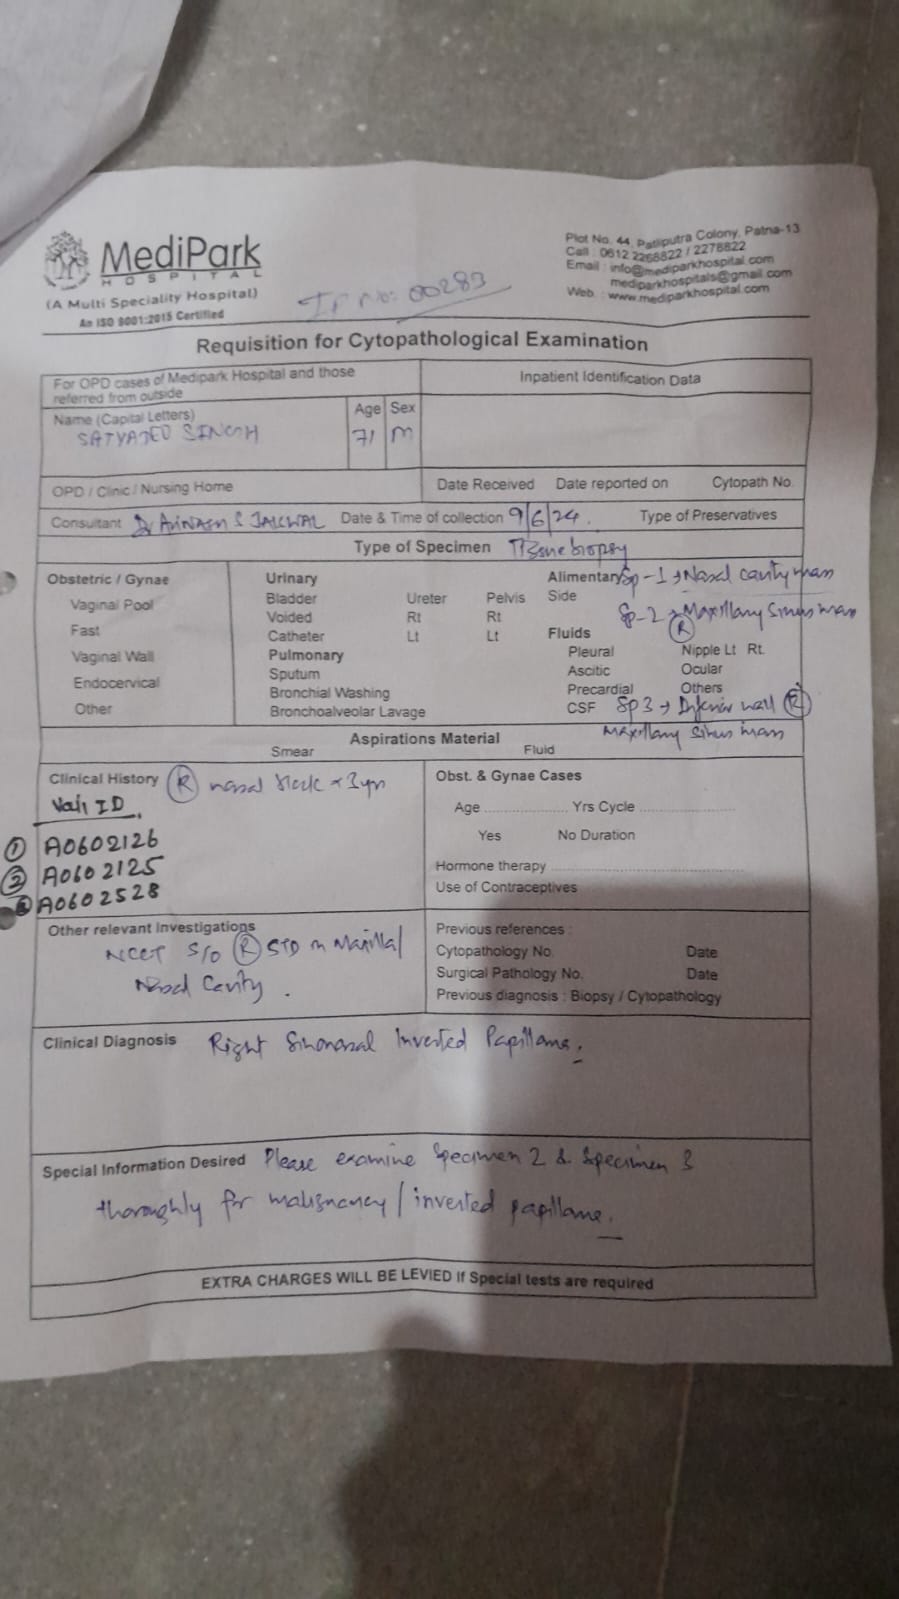 MediPark
HOSPITAL
(A Multi Speciality Hospital)
An ISO 9001:2015 Certified
Plot No. 44, Patliputra Colony, Patna-13
Call : 0612 2268822 / 2278822
Email : info@mediparkhospital.com
mediparkhospitals@gmail.com
Web. : www.mediparkhospital.com
No: 00283
Requisition for Cytopathological Examination
For OPD cases of Medipark Hospital and those
referred from outside
Inpatient Identification Data
Name (Capital Letters)
Age Sex
SATYADEO SINGH 71 M
OPD / Clinic / Nursing Home
Date Received Date reported on Cytopath No.
Consultant Dr AVINASH S JAISWAL Date & Time of collection 9/6/24. Type of Preservatives
Type of Specimen Tissue biopsy
Obstetric / Gynae
Vaginal Pool
Fast
Vaginal Wall
Endocervical
Other
Urinary
Bladder Ureter Pelvis
Voided Rt Rt
Catheter Lt Lt
Pulmonary
Sputum
Bronchial Washing
Bronchoalveolar Lavage
Alimentary Sp-1 → Nasal cavity mass
Side
Sp-2 → (R) Maxillary sinus mass
Fluids
Pleural Nipple Lt Rt.
Ascitic Ocular
Precardial Others
CSF Sp 3 → Inferior wall (R)
Maxillary sinus mass
Aspirations Material
Smear Fluid
Clinical History (R) nasal block x 3 yrs
Vail ID
① A0602126
② A0602125
③ A0602528
Obst. & Gynae Cases
Age .................... Yrs Cycle .......................
Yes No Duration
Hormone therapy ............................................
Use of Contraceptives
Other relevant Investigations
NCCT S/O (R) STD in Maxilla/
Nasal Cavity.
Previous references :
Cytopathology No. Date
Surgical Pathology No. Date
Previous diagnosis : Biopsy / Cytopathology
Clinical Diagnosis Right Sinonasal Inverted Papilloma.
Special Information Desired Please examine Specimen 2 & Specimen 3
thoroughly for malignancy / inverted papilloma.
EXTRA CHARGES WILL BE LEVIED If Special tests are required